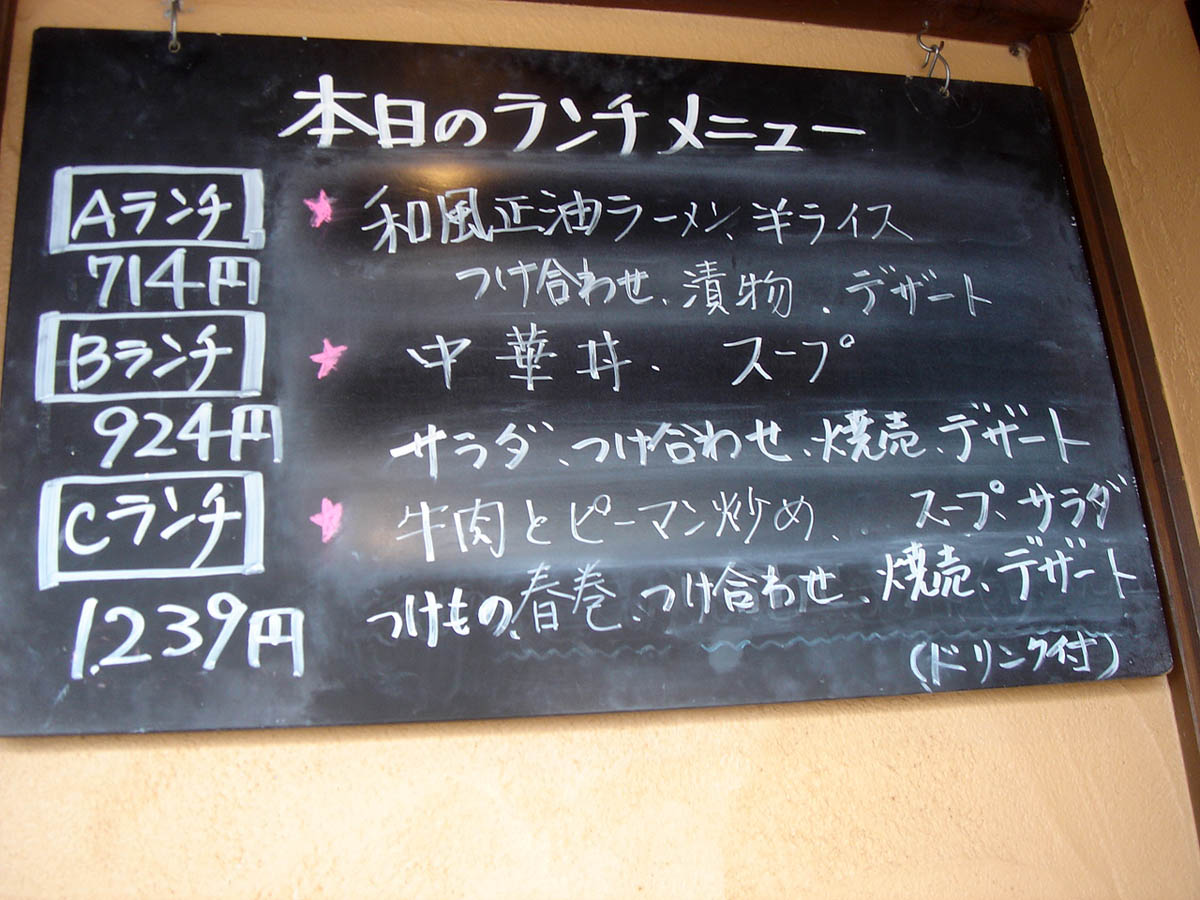 本日のランチメニュー
Aランチ
★ 和風正油ラーメン、半ライス
714円
つけ合わせ、漬物、デザート
Bランチ
★ 中華丼、スープ
924円
サラダ、つけ合わせ、焼売、デザート
Cランチ
★ 牛肉とピーマン炒め、スープ、サラダ
1.239円
つけもの、春巻、つけ合わせ、焼売、デザート
(ドリンク付)